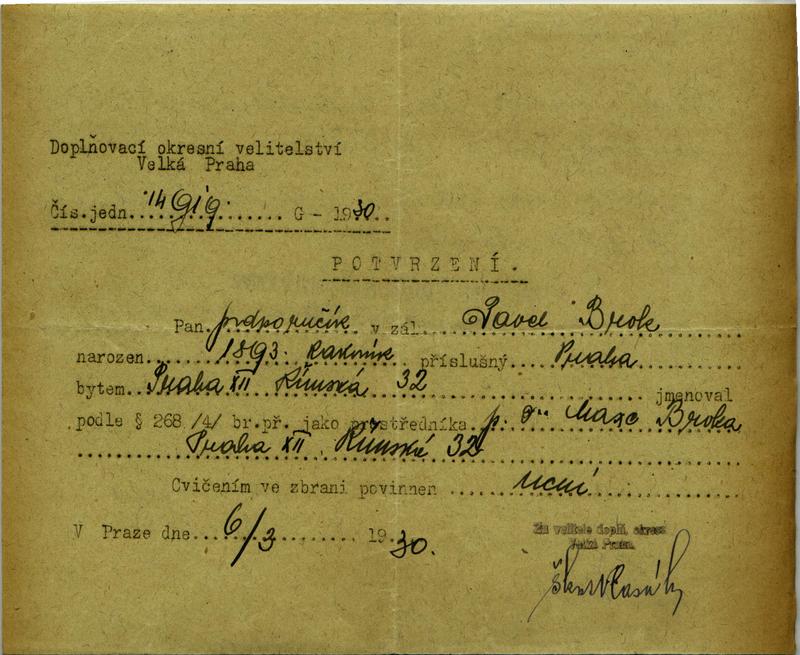 Doplňovací okresní velitelství
Velká Praha
Čís.jedn. 14919 G - 1930
POTVRZENÍ.
Pan podporučík v zál. Pavel Brok
narozen 1893. Rakovník příslušný Praha
bytem Praha XII Římská 32 jmenoval
podle § 268 /4/ br.př. jako prostředníka p. Maxe Broka
Praha XII, Římská 32
Cvičením ve zbrani povinnen není
V Praze dne 6/3 1930.
Za velitele doplň. okresu
Velká Praha.